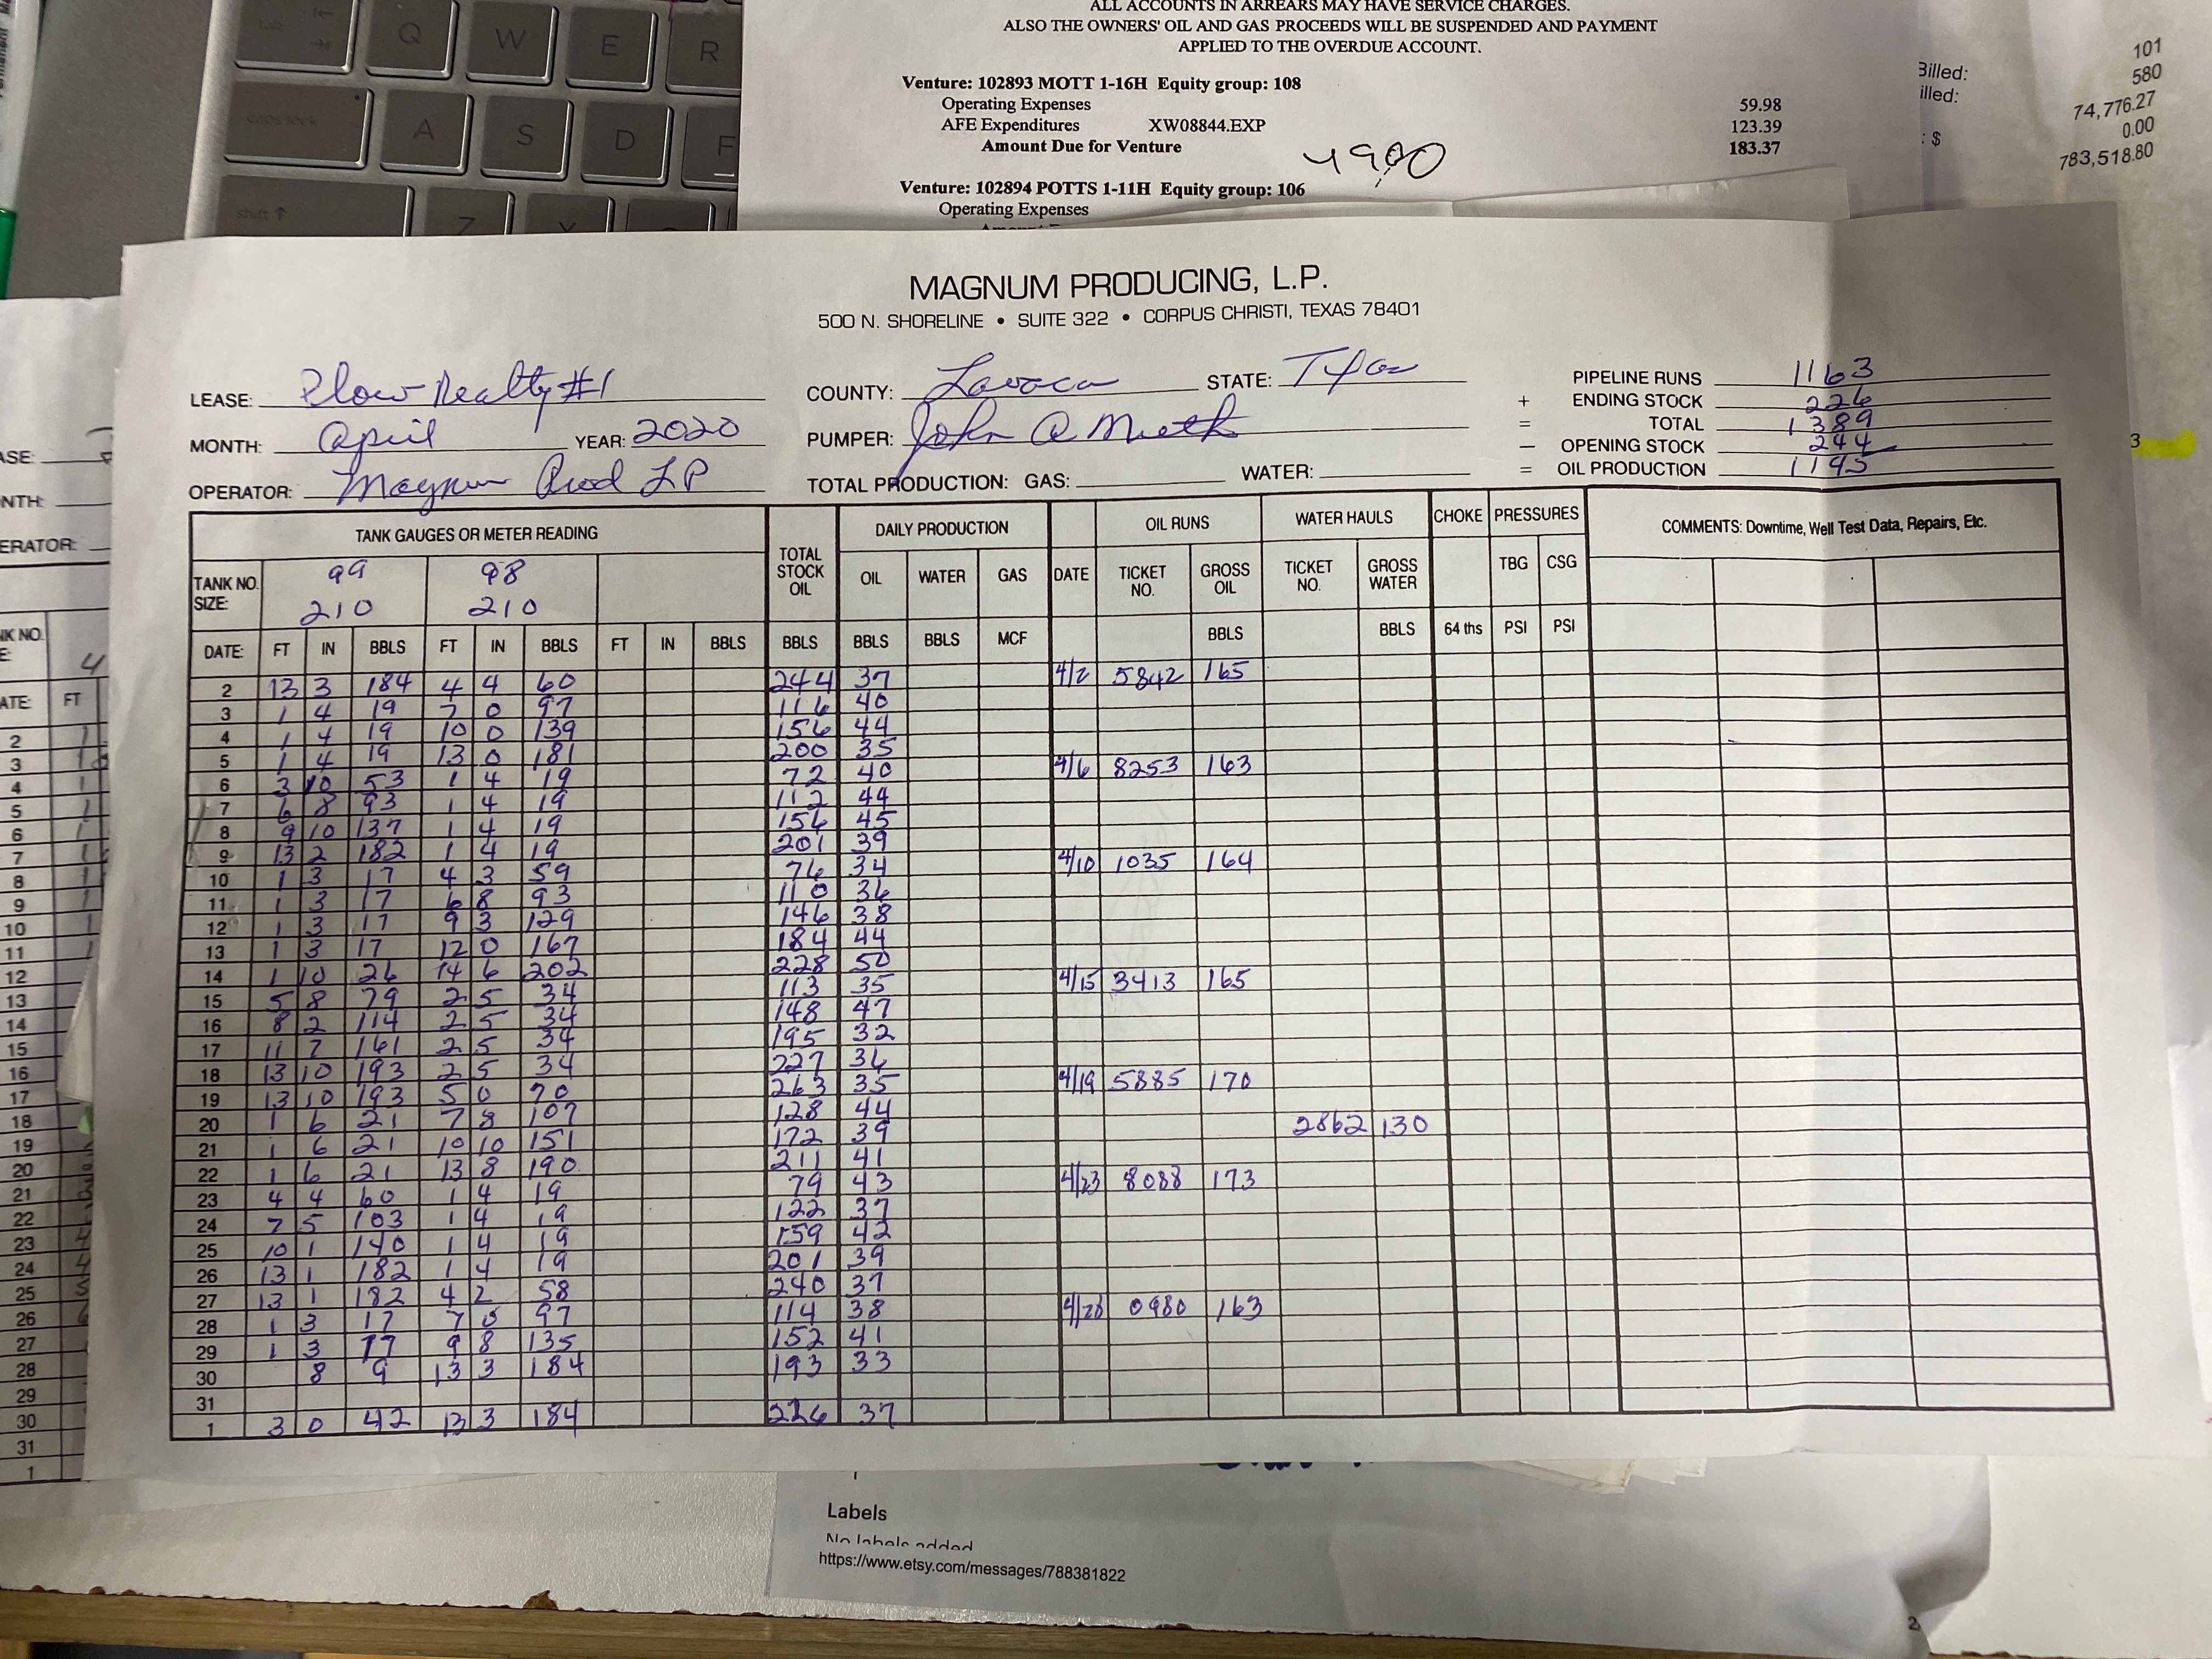 Q W E R
caps lock A S D F
shift ↑ Z X
ALL ACCOUNTS IN ARREARS MAY HAVE SERVICE CHARGES.
ALSO THE OWNERS' OIL AND GAS PROCEEDS WILL BE SUSPENDED AND PAYMENT
APPLIED TO THE OVERDUE ACCOUNT.
Venture: 102893 MOTT 1-16H Equity group: 108
Operating Expenses 59.98
AFE Expenditures XW08844.EXP 123.39
Amount Due for Venture 183.37
Venture: 102894 POTTS 1-11H Equity group: 106
Operating Expenses
Billed: 101
illed: 580
74,776.27
: $ 0.00
783,518.80
MAGNUM PRODUCING, L.P.
500 N. SHORELINE • SUITE 322 • CORPUS CHRISTI, TEXAS 78401
LEASE: Plow Realty #1 COUNTY: Lavaca STATE: Texas PIPELINE RUNS 1163
+ ENDING STOCK 226
MONTH: April YEAR: 2020 PUMPER: John A Mueth = TOTAL 1389
− OPENING STOCK 244
OPERATOR: Magnum Prod LP TOTAL PRODUCTION: GAS: WATER: = OIL PRODUCTION 1145
TANK GAUGES OR METER READING TOTAL STOCK OIL DAILY PRODUCTION OIL RUNS WATER HAULS CHOKE PRESSURES COMMENTS: Downtime, Well Test Data, Repairs, Etc.
TANK NO. 99 98 OIL WATER GAS DATE TICKET NO. GROSS OIL TICKET NO. GROSS WATER TBG CSG
SIZE: 210 210
DATE: FT IN BBLS FT IN BBLS FT IN BBLS BBLS BBLS BBLS MCF BBLS BBLS 64 ths PSI PSI
2 13 3 184 4 4 60 244 37 4/2 5842 165
3 1 4 19 7 0 97 116 40
4 1 4 19 10 0 139 156 44
5 1 4 19 13 0 181 200 35
6 3 10 53 1 4 19 72 40 4/6 8253 163
7 6 8 93 1 4 19 112 44
8 9 10 137 1 4 19 156 45
9 13 2 182 1 4 19 201 39
10 1 3 17 4 3 59 76 34 4/10 1035 164
11 1 3 17 6 8 93 110 36
12 1 3 17 9 3 129 146 38
13 1 3 17 12 0 167 184 44
14 1 10 26 14 6 202 228 50
15 5 8 79 2 5 34 113 35 4/15 3413 165
16 8 2 114 2 5 34 148 47
17 11 7 161 2 5 34 195 32
18 13 10 193 2 5 34 227 36
19 13 10 193 5 0 70 263 35 4/19 5885 170
20 1 6 21 7 8 107 128 44
21 1 6 21 10 10 151 172 39 2862 130
22 1 6 21 13 8 190 211 41
23 4 4 60 1 4 19 79 43 4/23 8088 173
24 7 5 103 1 4 19 122 37
25 10 1 140 1 4 19 159 42
26 13 1 182 1 4 19 201 39
27 13 1 182 4 2 58 240 37
28 1 3 17 7 0 97 114 38 4/28 0980 163
29 1 3 17 9 8 135 152 41
30 8 9 13 3 184 193 33
31
1 3 0 42 13 3 184 226 37
Labels
No labels added
https://www.etsy.com/messages/788381822